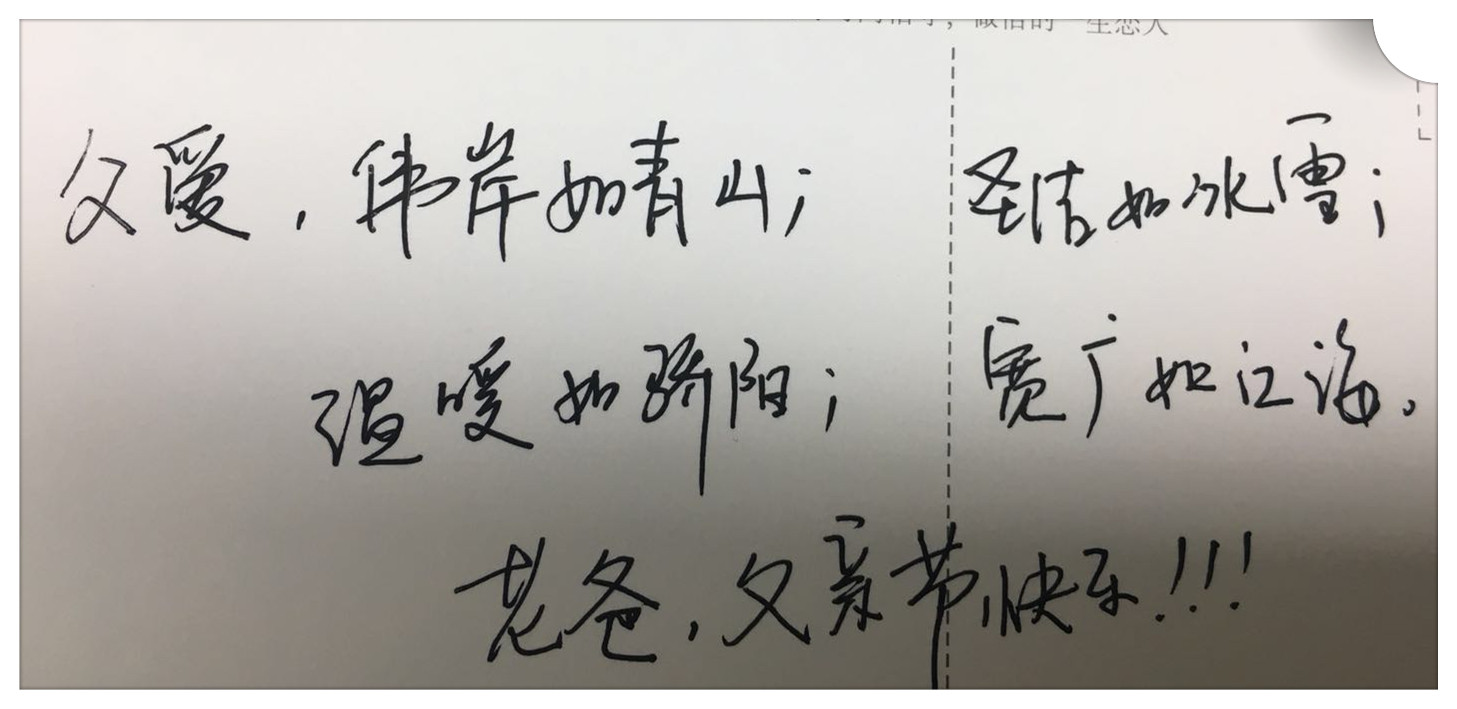 父爱，伟岸如青山；圣洁如冰雪；
温暖如骄阳；宽广如江海。
老爸，父亲节快乐!!!